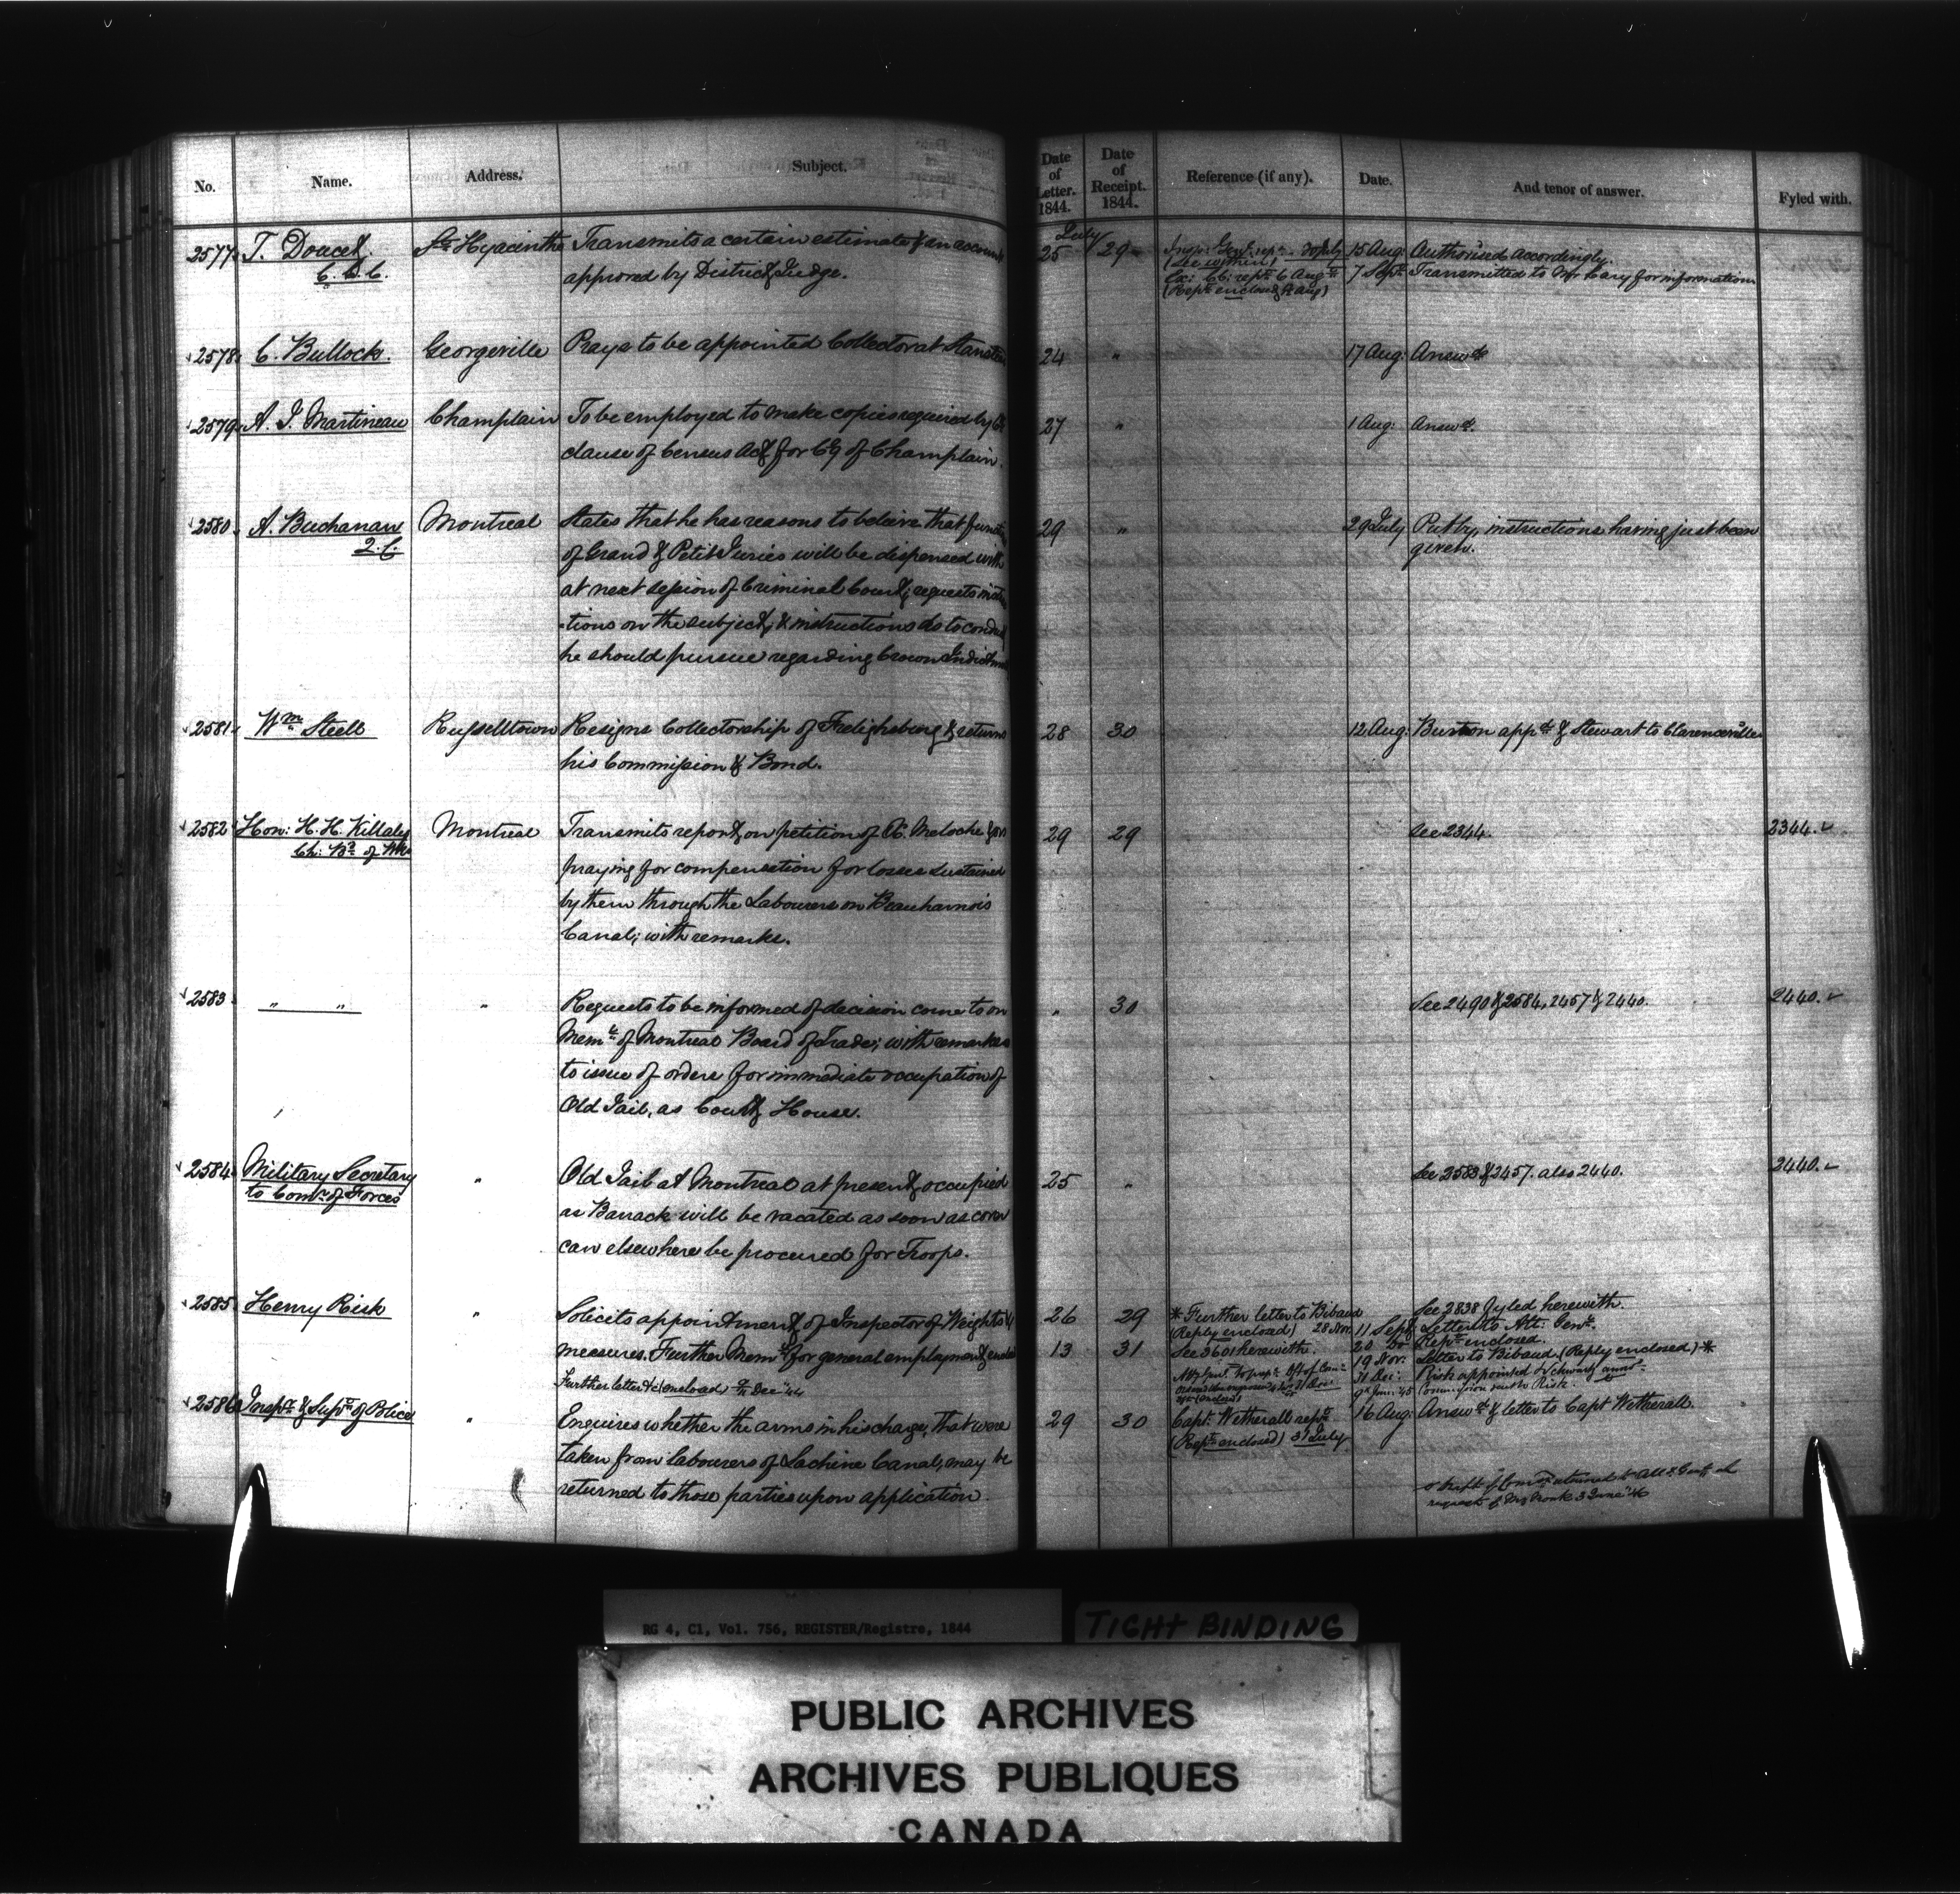 No. Name. Address. Subject. Date of Letter. 1844. Date of Receipt. 1844. Reference (if any). Date. And tenor of answer. Fyled with.
July
2577 T. Doucet St. Hyacinthe Transmits a certain estimate & an account 25 29 30 July 15 Aug: Authorised accordingly.
C.D.C. approved by District Judge. 7 Sept. Transmitted to Mr Cary for information
2578 C. Bullock. Georgeville Prays to be appointed Collector at Stanstead 24 " 17 Aug: Answd
2579 A. J. Martineau Champlain To be employed to make copies required by 27 " 1 Aug: Answd.
clause of Census Act for Cy of Champlain.
2580 A. Buchanan Montreal States that he has reasons to believe that 29 " 29 July Put by, instructions having just been
Q.C. of Grand & Petit Juries will be dispensed with given.
at next session of Criminal Court; requests
-tions on the subject, & instructions as to
he should pursue regarding Crown
2581 Wm Steele Russelltown Resigns Collectorship of Frelighsburg & returns 28 30 12 Aug: Burton appd & Stewart to Clarenceville
his Commission & Bond.
2582 Hon: H. H. Killaly Montreal Transmits report on petition of Meloche 29 29 See 2344. 2344.
Ch: Bd of Wks praying for compensation for losses sustained
by them through the Labourers on Beauharnois
Canal; with remarks.
2583 " " " Requests to be informed of decision come to on " 30 See 2490 & 2584, 2457 & 2440. 2440.
Meml of Montreal Board of Trade; with remarks
to issue of orders for immediate occupation of
Old Jail, as Court House.
2584 Military Secretary " Old Jail at Montreal at present occupied 25 " See 2583 & 2457. also 2440. 2440.
to Comr of Forces as Barrack will be vacated as soon as
can elsewhere be procured for Troops.
2585 Henry Risk " Solicits appointment of Inspector of Weights & 26 29 * Further letter to Bibaud See 3838 fyled herewith.
(Reply enclosed) 28 Nov. 11 Sept. Letter to Att: Genl.
measures. Further Meml for general employment 13 31 See 3601 herewith. 20 Do Rept enclosed.
19 Nov. Letter to Bibaud (Reply enclosed) *
Further letter enclosed Dec '44 31 Dec: Risk appointed
Jan: '45 Commission sent to Risk.
2586 Inspr & Supt of Police " Enquires whether the arms in his charge, that were 29 30 Capt. Wetherall rept 16 Aug: Answd & letter to Capt Wetherall.
(Rept enclosed) 31 July
taken from labourers of Lachine Canal, may be
returned to those parties upon application
RG 4, C1, Vol. 756, REGISTER/Registre, 1844
TIGHT BINDING
PUBLIC ARCHIVES
ARCHIVES PUBLIQUES
CANADA